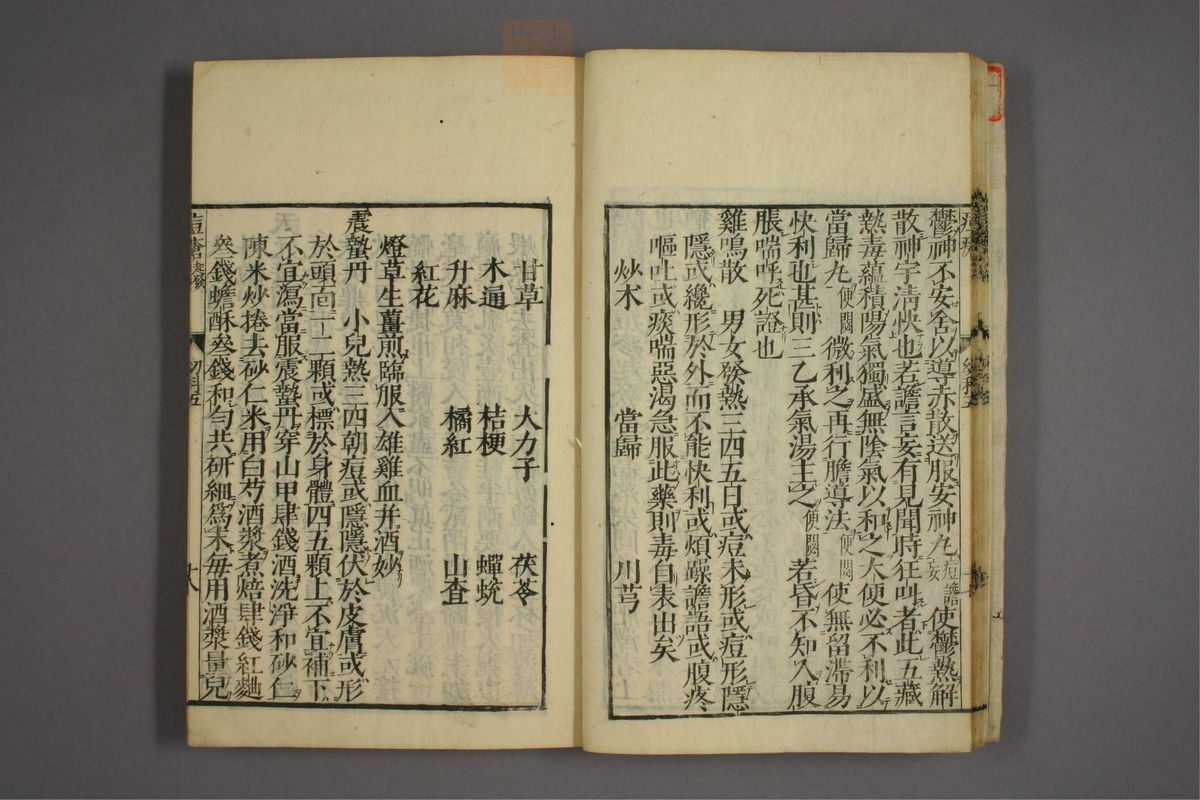 鬱神不安舍以導赤散送服安神丸痘譫妄使鬱熱解
散神宇清快也若譫言妄有見聞時狂叫者此五藏
熱毒蘊積陽氣獨盛無陰氣以和之大便必不利以
當歸丸便閟微利之再行膽導法便閟使無留滯易
快利也甚則三乙承氣湯主之便閟若昏不知人腹
脹喘呼死證也
雞鳴散 男女發熱三四五日或痘未形或痘形隱
隱或纔形於外而不能快利或煩躁譫語或腹疼
嘔吐或痰喘惡渴急服此藥則毒自表出矣
炒朮 當歸 川芎
甘草 大力子 茯苓
木通 桔梗 蟬蛻
升麻 橘紅 山查
紅花
燈草生薑煎臨服入雄雞血并酒妙
震蟄丹 小兒熱三四朝痘或隱隱伏於皮膚或形
於頭面一二顆或標於身體四五顆上不宜補下
不宜瀉當服震蟄丹穿山甲肆錢酒洗淨和砂仁
陳米炒捲去砂仁米用白芍酒漿煮焙肆錢紅麯
叄錢蟾酥叄錢和勻共研細爲末每用酒漿量兒